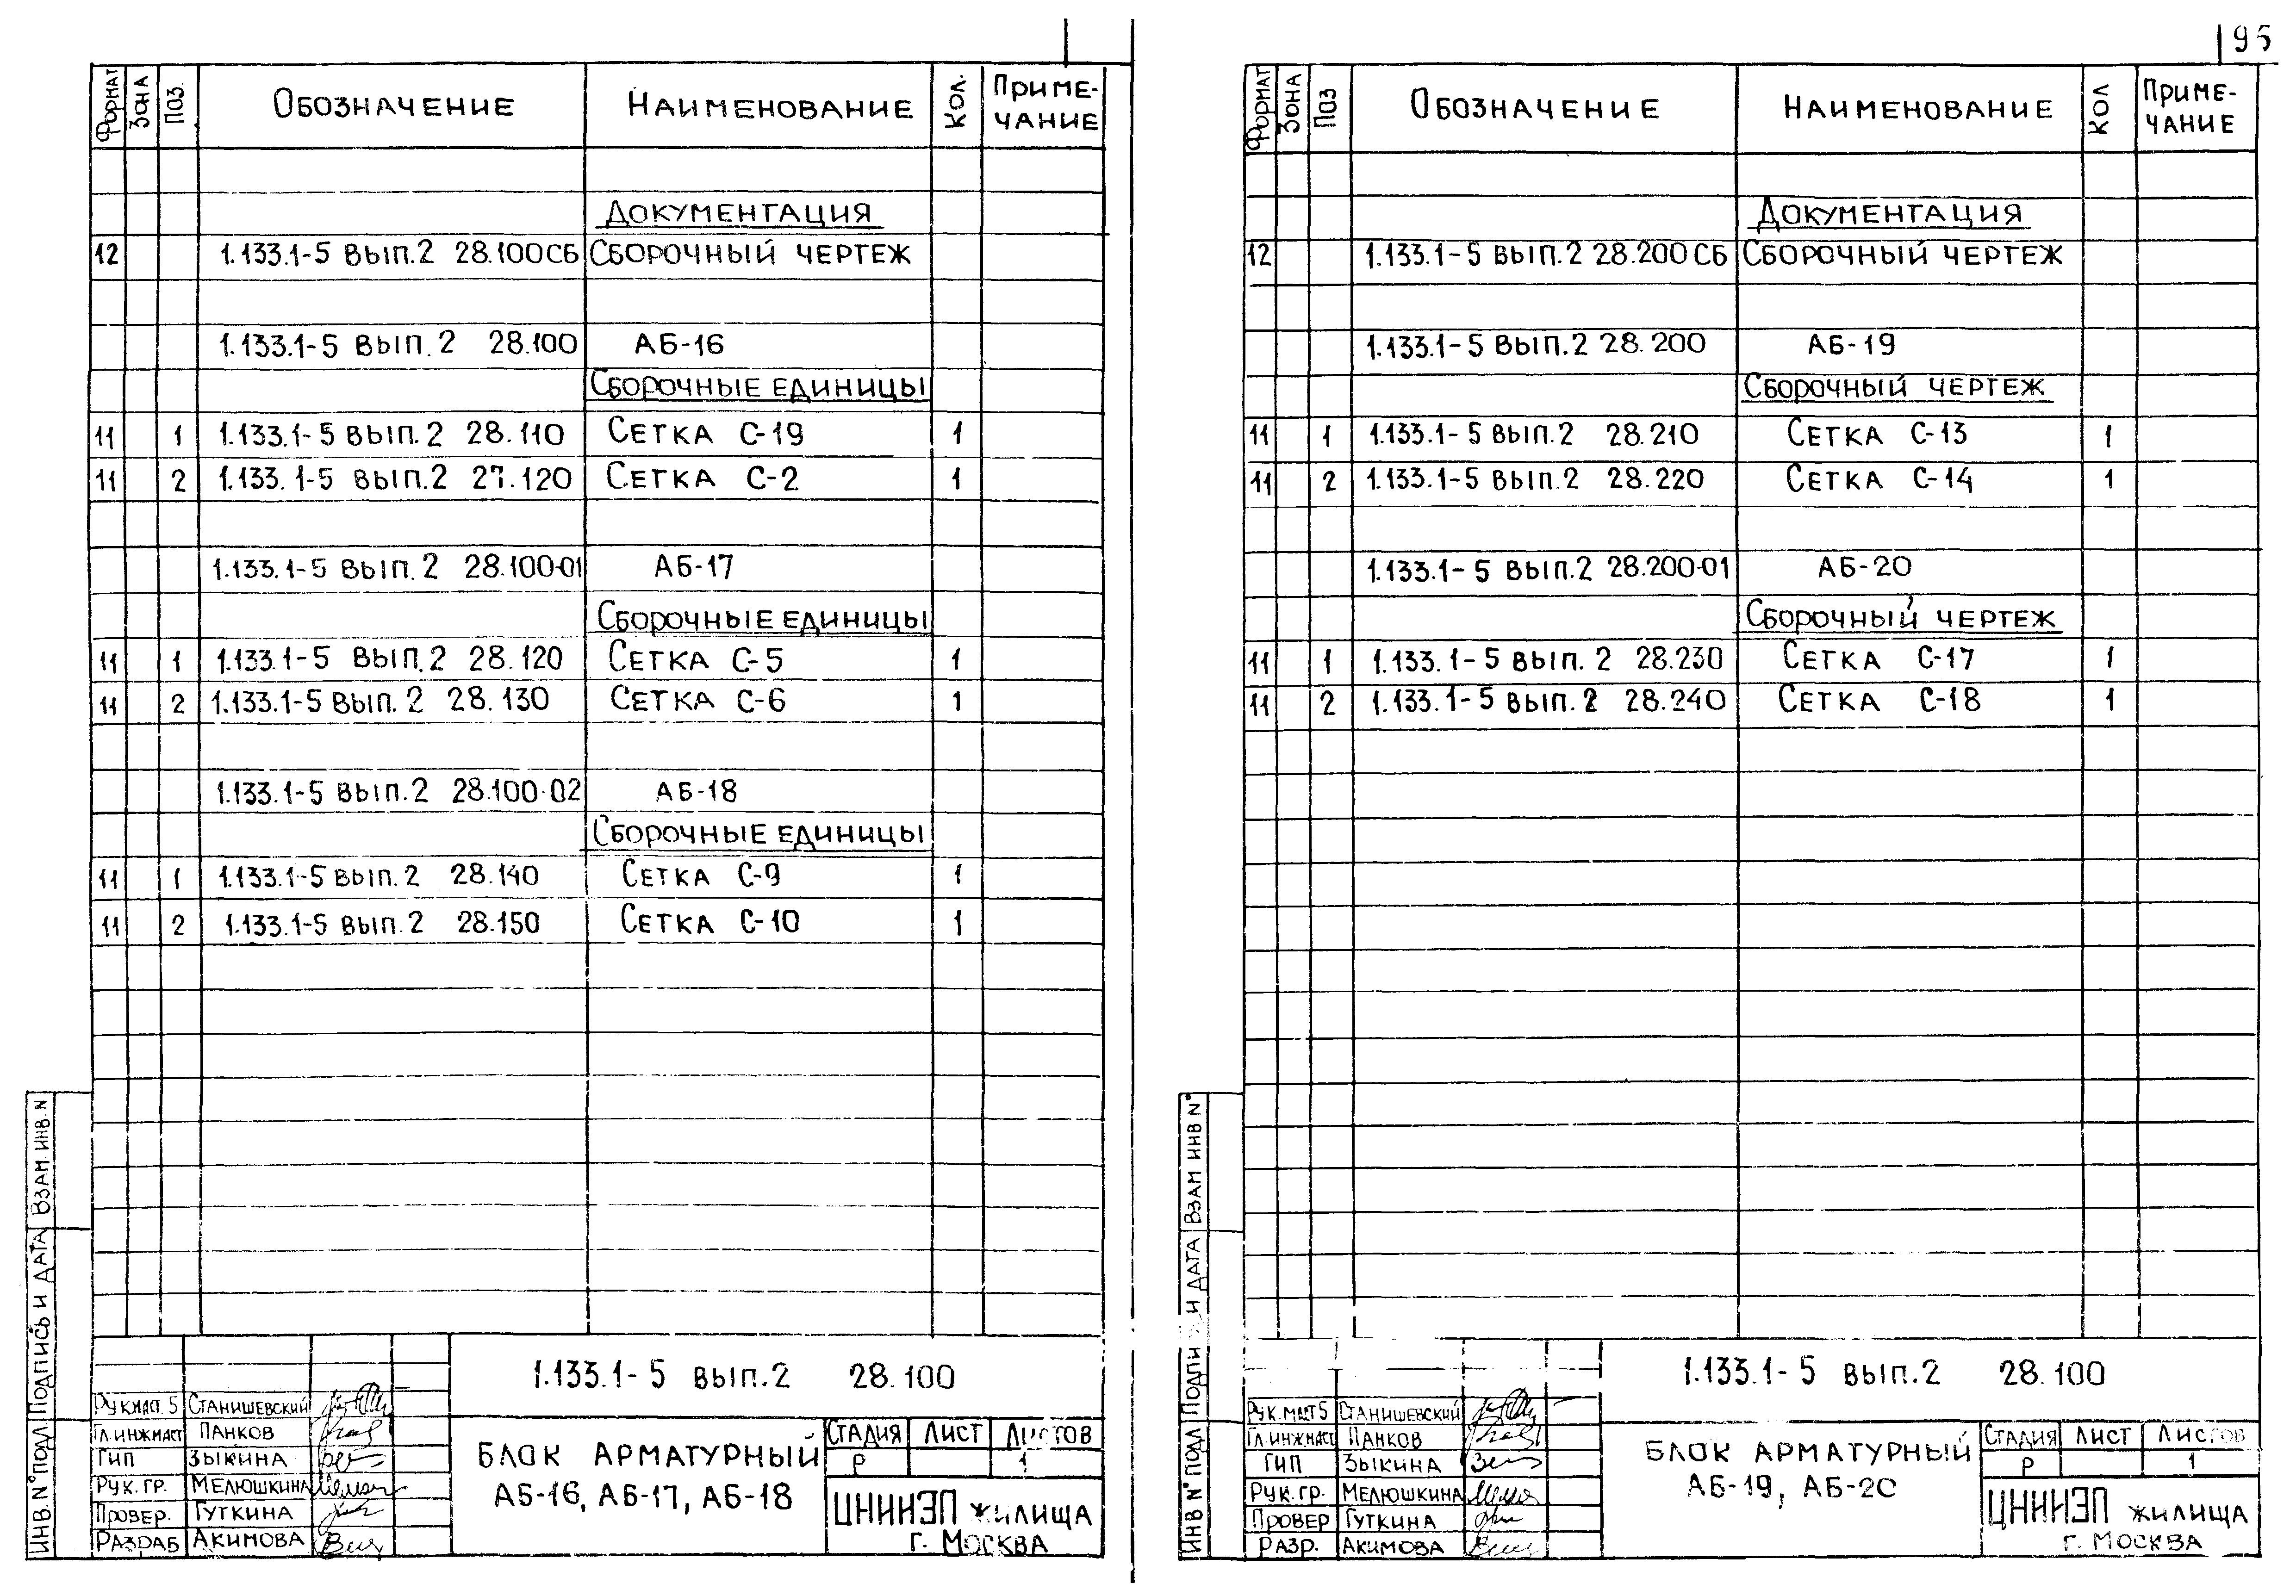 95
Формат Зона Поз. Обозначение Наименование Кол. Приме-
чание
Документация
12 1.133.1-5 вып.2 28.100СБ Сборочный чертеж
1.133.1-5 вып.2 28.100 АБ-16
Сборочные единицы
11 1 1.133.1-5 вып.2 28.110 Сетка С-19 1
11 2 1.133.1-5 вып.2 27.120 Сетка С-2 1
1.133.1-5 вып.2 28.100-01 АБ-17
Сборочные единицы
11 1 1.133.1-5 вып.2 28.120 Сетка С-5 1
11 2 1.133.1-5 вып.2 28.130 Сетка С-6 1
1.133.1-5 вып.2 28.100-02 АБ-18
Сборочные единицы
11 1 1.133.1-5 вып.2 28.140 Сетка С-9 1
11 2 1.133.1-5 вып.2 28.150 Сетка С-10 1
Инв. № подл Подпись и дата Взам инв. N
1.133.1-5 вып.2 28.100
Рук.маст.5 Станишевский
Гл.инжмаст Панков
Гип Зыкина
Рук.гр. Мелюшкина
Провер. Гуткина
Разраб Акимова
Блок арматурный
АБ-16, АБ-17, АБ-18
Стадия Лист Листов
Р 1
ЦНИИЭП жилища
г. Москва
Формат Зона Поз Обозначение Наименование Кол Приме-
чание
Документация
12 1.133.1-5 вып.2 28.200СБ Сборочный чертеж
1.133.1-5 вып.2 28.200 АБ-19
Сборочный чертеж
11 1 1.133.1-5 вып.2 28.210 Сетка С-13 1
11 2 1.133.1-5 вып.2 28.220 Сетка С-14 1
1.133.1-5 вып.2 28.200-01 АБ-20
Сборочный чертеж
11 1 1.133.1-5 вып.2 28.230 Сетка С-17 1
11 2 1.133.1-5 вып.2 28.240 Сетка С-18 1
Инв № подл и дата Взам инв №
1.133.1-5 вып.2 28.100
Рук.маст5 Станишевский
Гл.инжмаст Панков
Гип Зыкина
Рук.гр. Мелюшкина
Провер Гуткина
Разр. Акимова
Блок арматурный
АБ-19, АБ-20
Стадия Лист Листов
Р 1
ЦНИИЭП жилища
г. Москва